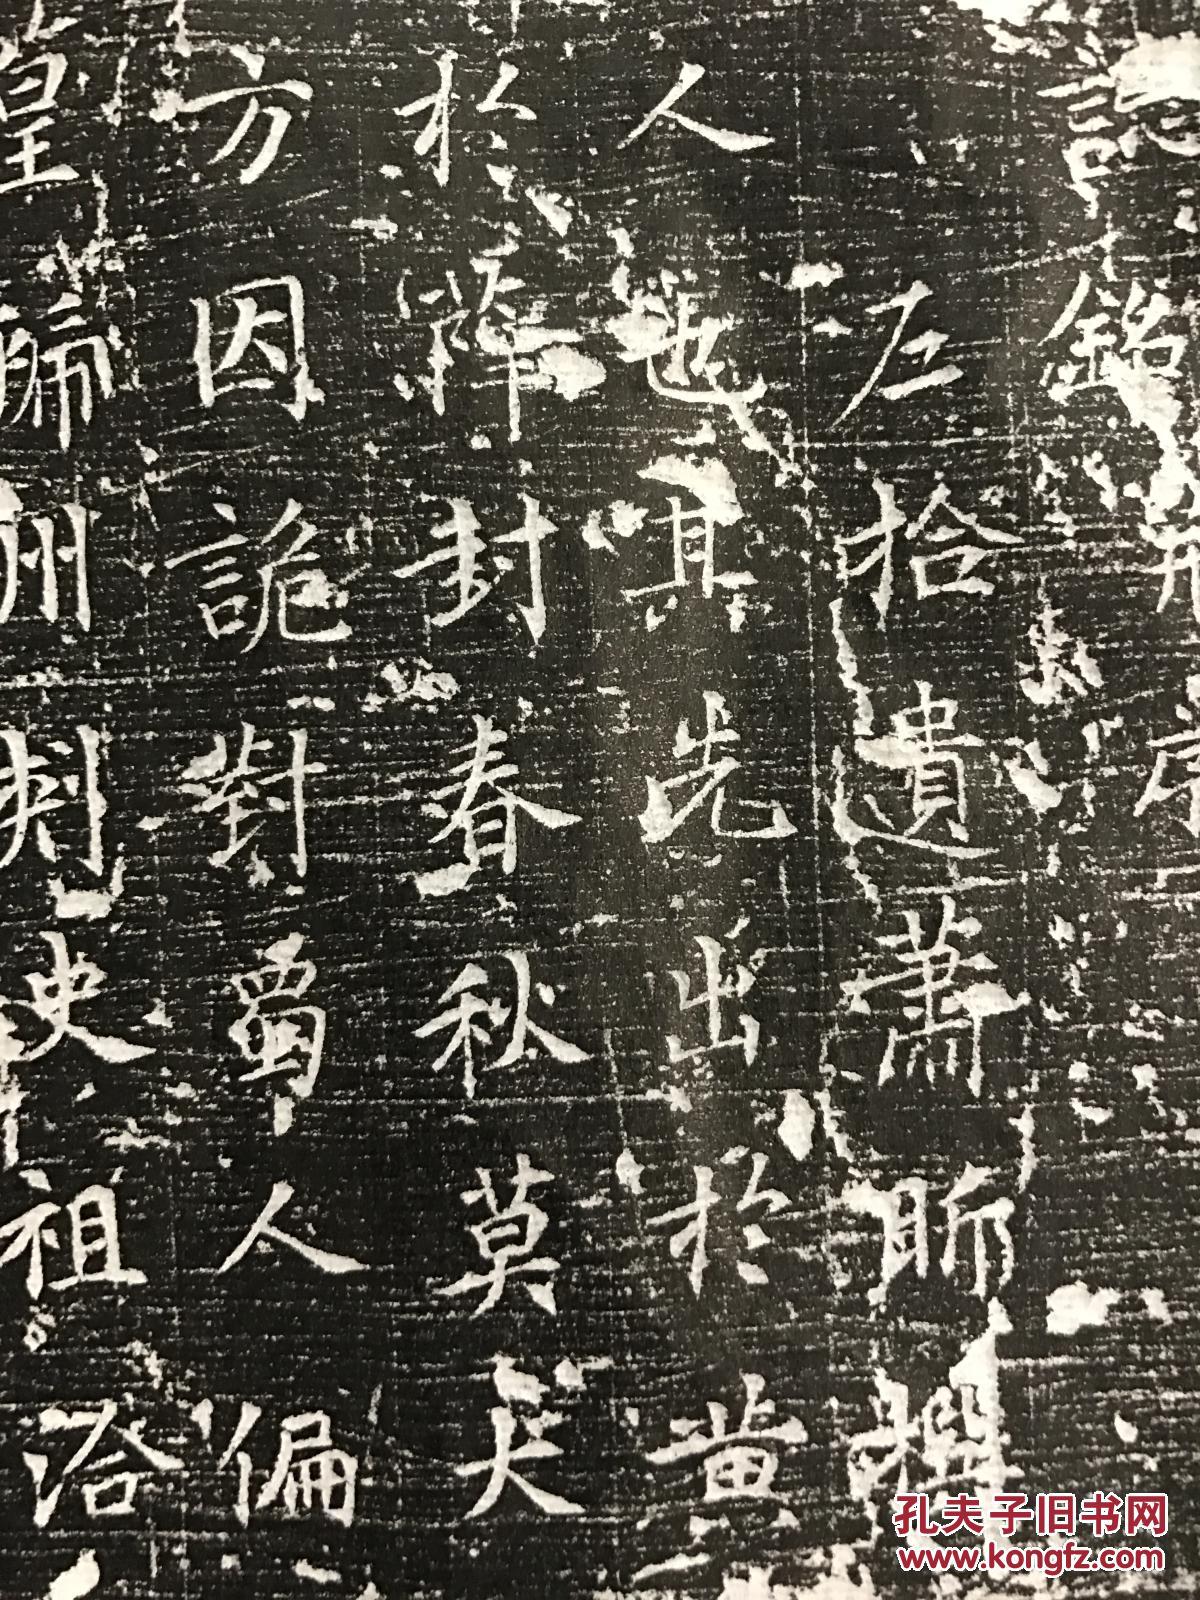 誌銘并序
左拾遺蕭昕撰
人也其先出於黃
於薛封春秋莫大
方因詭對蜀人偏
皇歸州刺史祖洽
孔夫子旧书网
www.kongfz.com